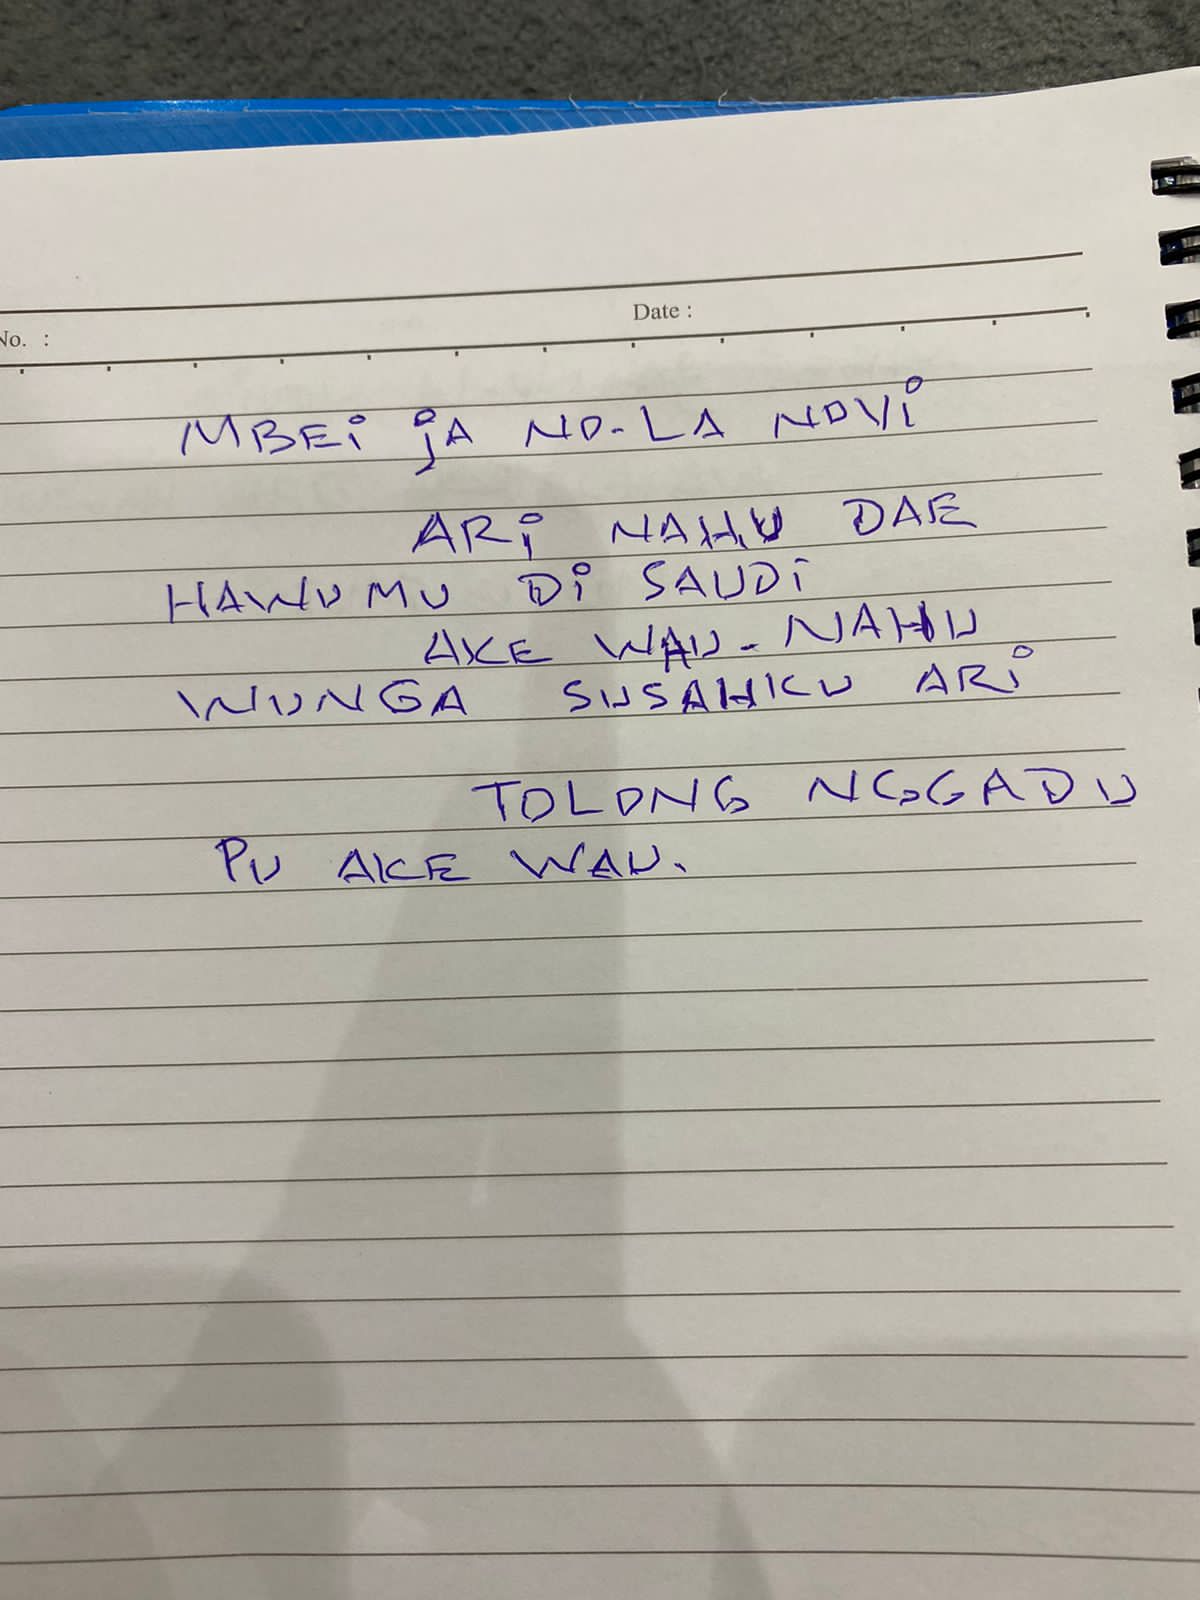 No. :
Date :
MBEi jA NO-LA NOVi
ARi NAHU DAE
HAWUMU Di SAUDi
AKE WAU- NAHU
WUNGA SUSAHKU ARi
TOLONG NGGADU
PU AKE WAU.